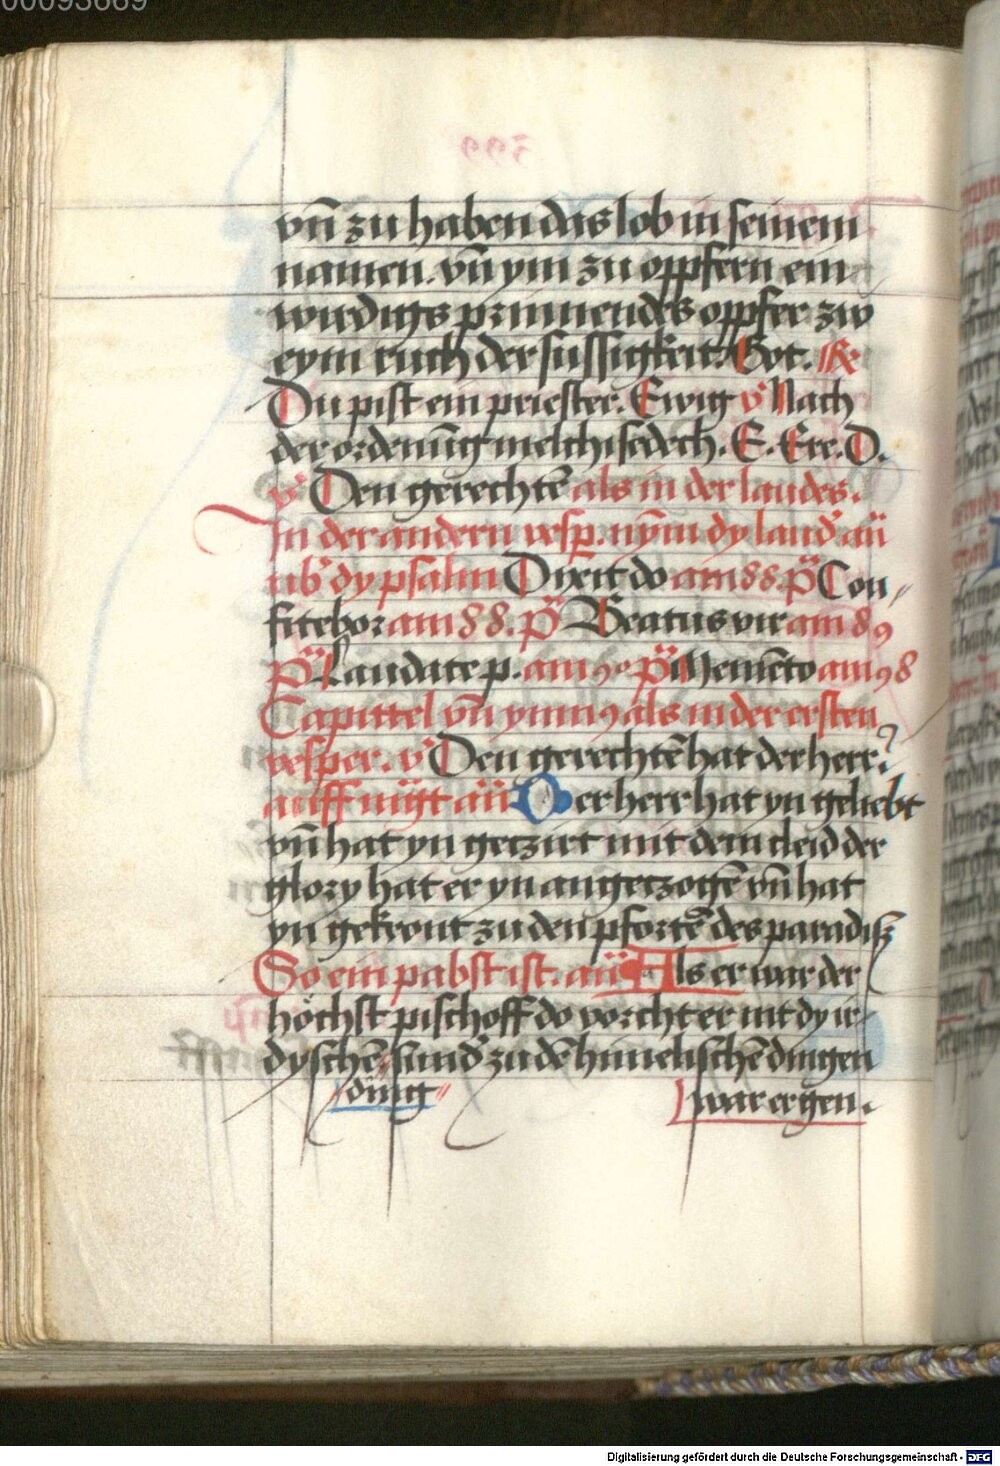 00093669
vn̄ zu haben das lob in seinem
namen. vn̄ ym zu oppfern ein
wirdigs prinnendes oppfer zw
eym ruch der sussigkeit. Got. R
Du pist ein priester. Ewig v Nach
der ordenūg melchisedech. E. Ere. D.
v Den gerechtē als in der laudes.
In der andern vesp. nym dy laud aū
vb dy psalm Dixit do am 88. p̄s Con
fitebor am 88. p̄s Beatus vir am 89
p̄s Laudate p. am 90 p̄s Memēto am 98
Capittel vn̄ ymn9 als in der ersten
vesper. v Den gerechtē hat der herr.
auff mgt aū Der herr hat yn geliebt
vn̄ hat yn getzirt mit dem cleid der
glory hat er yn angetzogē vn̄ hat
yn gekront zu den pfortē des paradisz
So ein pabst ist. aū Als er war der
höchst pischoff do vorcht er nit dy ir
dyschē sund zu dē himelischē dingen
ding war er gen.
Digitalisierung gefördert durch die Deutsche Forschungsgemeinschaft - DFG